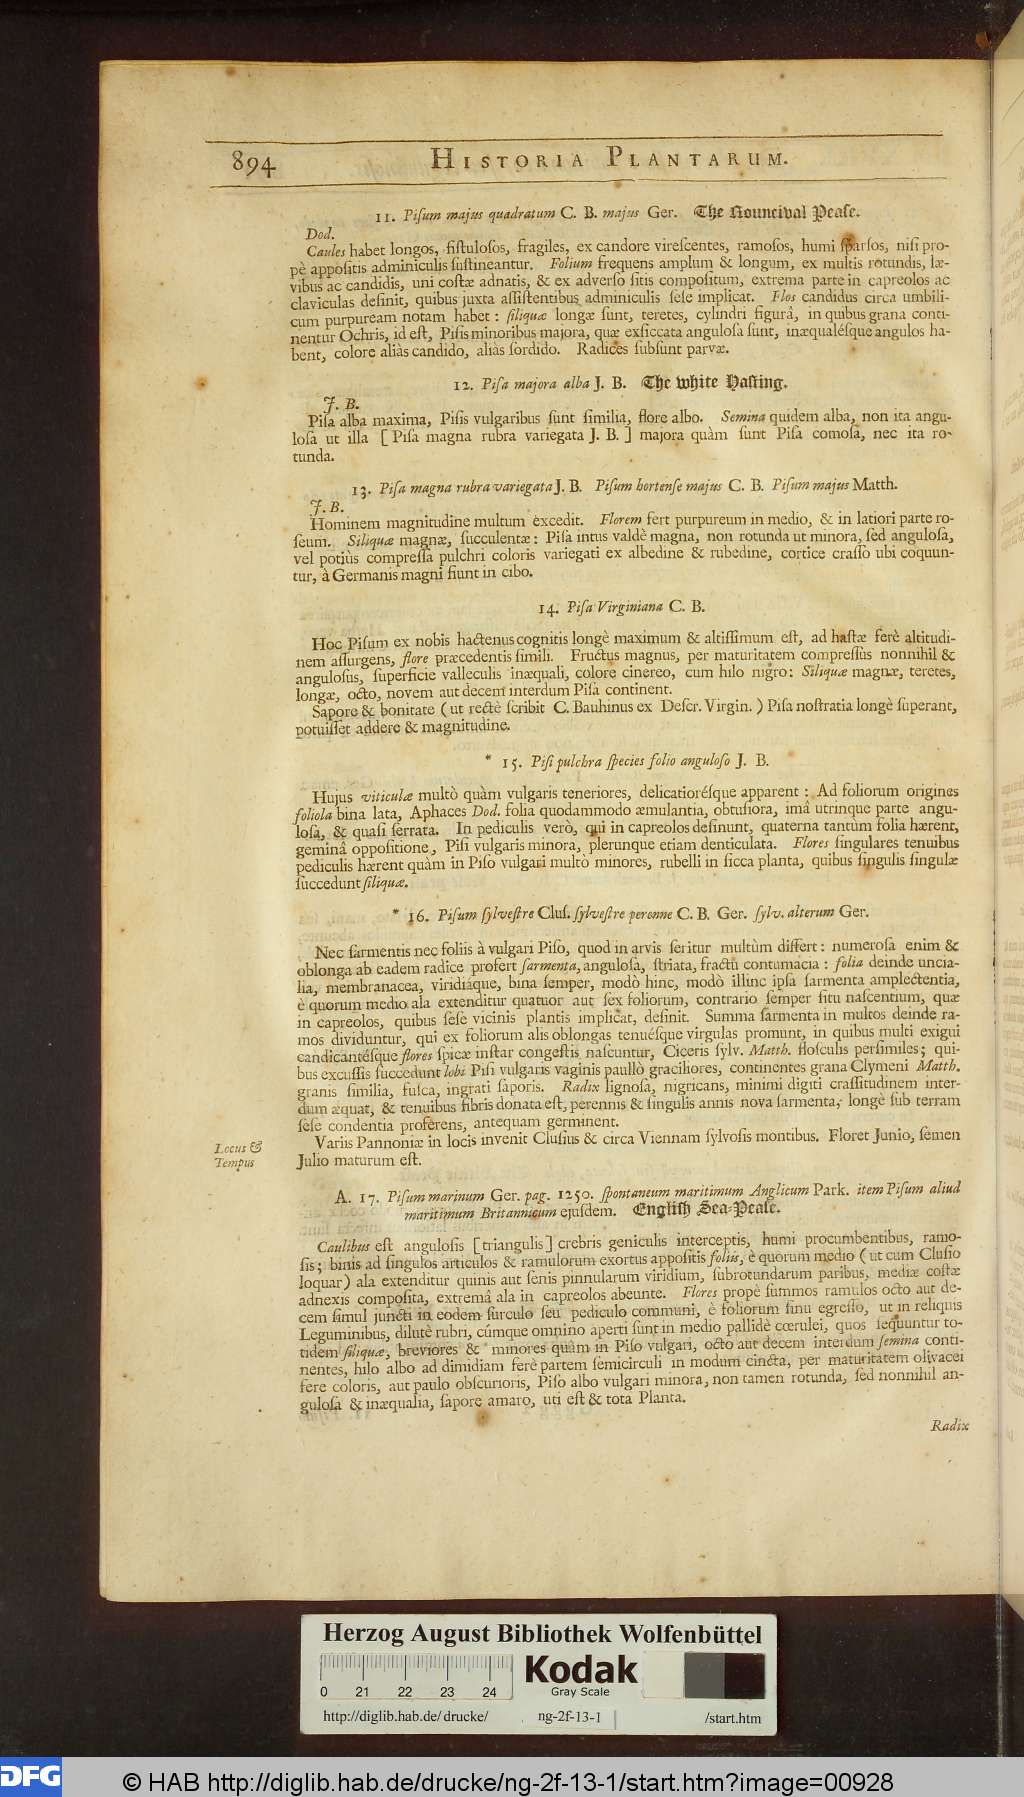 894 HISTORIA PLANTARUM.
11. Piſum majus quadratum C. B. majus Ger. The Rouncival Peaſe.
Dod.
Caules habet longos, fiſtuloſos, fragiles, ex candore vireſcentes, ramoſos, humi ſparſos, niſi pro-
pè appoſitis adminiculis ſuſtineantur. Folium frequens amplum & longum, ex multis rotundis, læ-
vibus ac candidis, uni coſtæ adnatis, & ex adverſo ſitis compoſitum, extrema parte in capreolos ac
claviculas deſinit, quibus juxta aſſiſtentibus adminiculis ſeſe implicat. Flos candidus circa umbili-
cum purpuream notam habet: ſiliquæ longæ ſunt, teretes, cylindri figurâ, in quibus grana conti-
nentur Ochris, id eſt, Piſis minoribus majora, quæ exſiccata anguloſa ſunt, inæqualéſque angulos ha-
bent, colore aliàs candido, aliàs ſordido. Radices ſubſunt parvæ.
12. Piſa majora alba J. B. The white Haſting.
J. B.
Piſa alba maxima, Piſis vulgaribus ſunt ſimilia, flore albo. Semina quidem alba, non ita angu-
loſa ut illa [ Piſa magna rubra variegata J. B. ] majora quàm ſunt Piſa comoſa, nec ita ro-
tunda.
13. Piſa magna rubra variegata J. B. Piſum hortenſe majus C. B. Piſum majus Matth.
J. B.
Hominem magnitudine multum excedit. Florem fert purpureum in medio, & in latiori parte ro-
ſeum. Siliquæ magnæ, ſucculentæ: Piſa intus valdè magna, non rotunda ut minora, ſed anguloſa,
vel potiùs compreſſa pulchri coloris variegati ex albedine & rubedine, cortice craſſo ubi coquun-
tur, à Germanis magni fiunt in cibo.
14. Piſa Virginiana C. B.
Hoc Piſum ex nobis hactenus cognitis longè maximum & altiſſimum eſt, ad haſtæ ferè altitudi-
nem aſſurgens, flore præcedentis ſimili. Fructus magnus, per maturitatem compreſſus nonnihil &
anguloſus, ſuperficie valleculis inæquali, colore cinereo, cum hilo nigro: Siliquæ magnæ, teretes,
longæ, octo, novem aut decem interdum Piſa continent.
Sapore & bonitate ( ut rectè ſcribit C. Bauhinus ex Deſcr. Virgin. ) Piſa noſtratia longè ſuperant,
potuiſſet addere & magnitudine.
* 15. Piſi pulchra ſpecies folio anguloſo J. B.
Hujus viticulæ multò quàm vulgaris teneriores, delicatioréſque apparent: Ad foliorum origines
foliola bina lata, Aphaces Dod. folia quodammodo æmulantia, obtuſiora, imâ utrinque parte angu-
loſa, & quaſi ſerrata. In pediculis verò, qui in capreolos deſinunt, quaterna tantùm folia hærent,
geminâ oppoſitione, Piſi vulgaris minora, plerunque etiam denticulata. Flores ſingulares tenuibus
pediculis hærent quàm in Piſo vulgari multò minores, rubelli in ſicca planta, quibus ſingulis ſingulæ
ſuccedunt ſiliquæ.
* 16. Piſum ſylveſtre Cluſ. ſylveſtre perenne C. B. Ger. ſylv. alterum Ger.
Nec ſarmentis nec foliis à vulgari Piſo, quod in arvis ſeritur multùm differt: numeroſa enim &
oblonga ab eadem radice profert ſarmenta, anguloſa, ſtriata, fractu contumacia: folia deinde uncia-
lia, membranacea, viridiáque, bina ſemper, modò hinc, modò illinc ipſa ſarmenta amplectentia,
è quorum medio ala extenditur quatuor aut ſex foliorum, contrario ſemper ſitu naſcentium, quæ
in capreolos, quibus ſeſe vicinis plantis implicat, deſinit. Summa ſarmenta in multos deinde ra-
mos dividuntur, qui ex foliorum alis oblongas tenuéſque virgulas promunt, in quibus multi exigui
candicantéſque flores ſpicæ inſtar congeſtis naſcuntur, Ciceris ſylv. Matth. floſculis perſimiles; qui-
bus excuſſis ſuccedunt lobi Piſi vulgaris vaginis paullò graciliores, continentes grana Clymeni Matth.
granis ſimilia, fuſca, ingrati ſaporis. Radix lignoſa, nigricans, minimi digiti craſſitudinem inter-
dum æquat, & tenuibus fibris donata eſt, perennis & ſingulis annis nova ſarmenta, longè ſub terram
ſeſe condentia proferens, antequam germinent.
Locus &
Tempus
Variis Pannoniæ in locis invenit Cluſius & circa Viennam ſylvoſis montibus. Floret Junio, ſemen
Julio maturum eſt.
A. 17. Piſum marinum Ger. pag. 1250. ſpontaneum maritimum Anglicum Park. item Piſum aliud
maritimum Britannicum ejuſdem. Engliſh Sea-Peaſe.
Caulibus eſt anguloſis [ triangulis ] crebris geniculis interceptis, humi procumbentibus, ramo-
ſis; binis ad ſingulos articulos & ramulorum exortus appoſitis foliis, è quorum medio ( ut cum Cluſio
loquar ) ala extenditur quinis aut ſenis pinnularum viridium, ſubrotundarum paribus, mediæ coſtæ
adnexis compoſita, extremâ ala in capreolos abeunte. Flores propè ſummos ramulos octo aut de-
cem ſimul juncti in eodem ſurculo ſeu pediculo communi, è foliorum ſinu egreſſo, ut in reliquis
Leguminibus, dilutè rubri, cúmque omnino aperti ſunt in medio pallidè cœrulei, quos ſequuntur to-
tidem ſiliquæ, breviores & minores quàm in Piſo vulgari, octo aut decem interdum ſemina conti-
nentes, hilo albo ad dimidiam ferè partem ſemicirculi in modum cincta, per maturitatem olivacei
fere coloris, aut paulo obſcurioris, Piſo albo vulgari minora, non tamen rotunda, ſed nonnihil an-
guloſa & inæqualia, ſapore amaro, uti eſt & tota Planta.
Radix
Herzog August Bibliothek Wolfenbüttel
Kodak
Gray Scale
0 21 22 23 24
http://diglib.hab.de/drucke/ ng-2f-13-1 /start.htm
DFG
© HAB http://diglib.hab.de/drucke/ng-2f-13-1/start.htm?image=00928